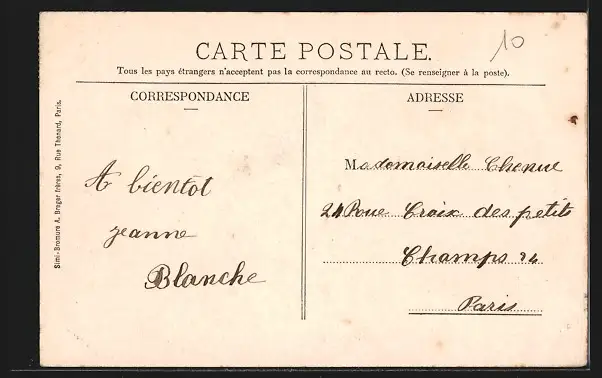 10
CARTE POSTALE.
Tous les pays étrangers n'acceptent pas la correspondance au recto. (Se renseigner à la poste).
CORRESPONDANCE
A bientot
jeanne
Blanche
ADRESSE
Mademoiselle Chenue
24 Roue Croix des petits
Champs 24
Paris
Simi-Bromure A. Breger frères, 9, Rue Thénard, Paris.